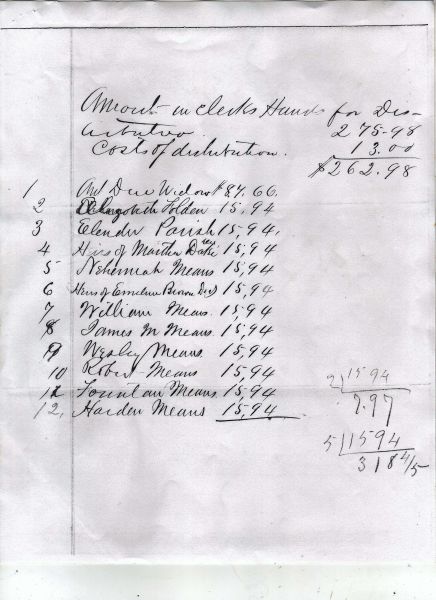 Amount in Clerks Hands for Dis-
tribution 275-98
Costs of distribution. 13.00
$262.98
1 Amt Due Widow $87.66.
2 Elizabeth Holden 15,94
3 Elender Parish 15,94.
4 Heirs of Martha 15,94
5 Nehemiah Means 15,94
6 Heirs of Emeline Brown Decd 15,94
7 William Means. 15,94
8 James M Means. 15,94
9 Wesley Means 15,94
10 Robert Means 15,94
11 Fountain Means 15,94
12, Harden Means 15,94
2 15 94
7.97
5 1594
318 4/5